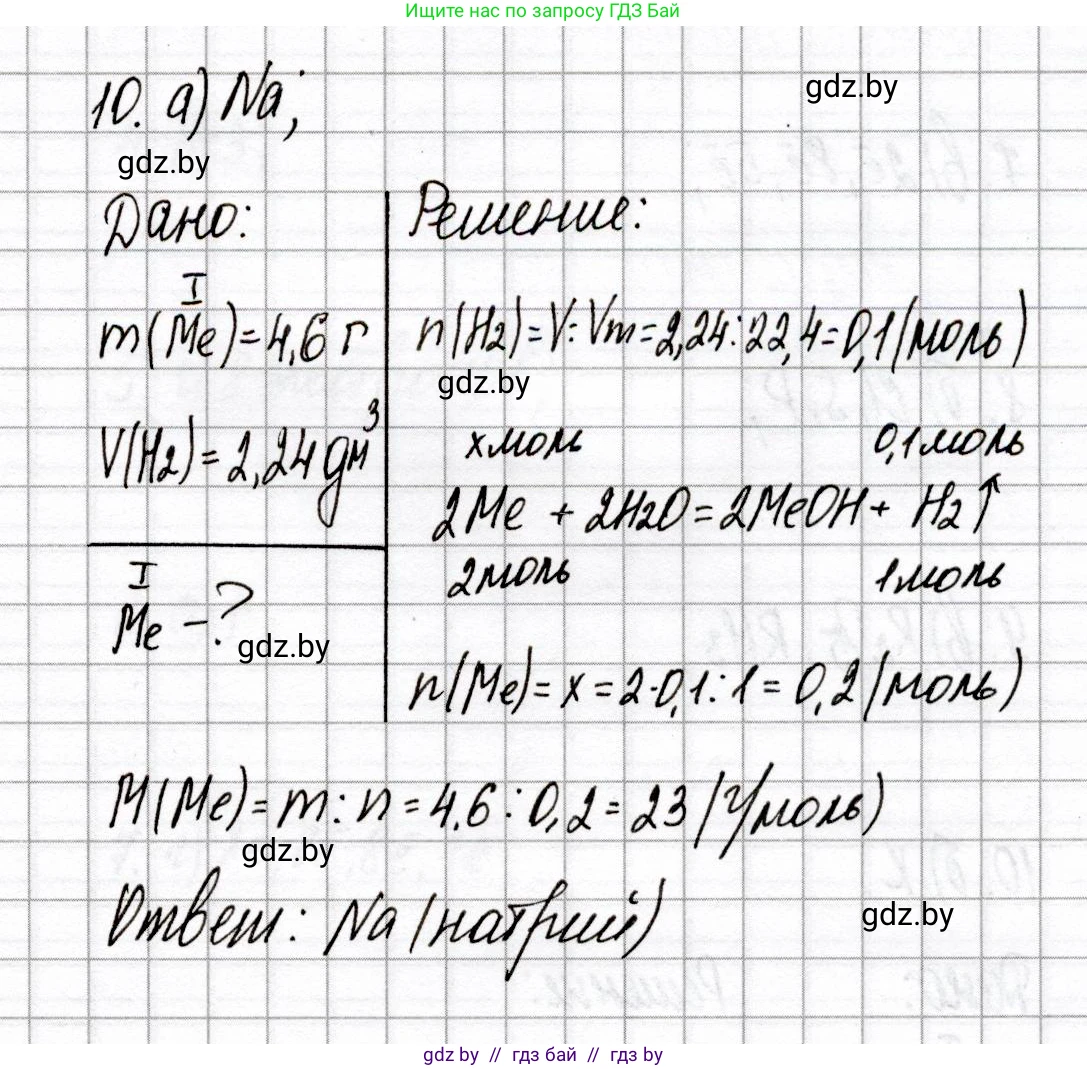 Ищите нас по запросу ГДЗ Бай
10. а) Na;
gdz.by
gdz.by
Дано:
Решение:
I
m(Me)=4,6 г
n(H₂)=V:Vm=2,24:22,4=0,1(моль)
gdz.by
V(H₂)=2,24 дм³
x моль 0,1 моль
2Me + 2H₂O = 2MeOH + H₂↑
2 моль 1 моль
I
Me -?
gdz.by
n(Me)= x = 2·0,1:1 = 0,2(моль)
M(Me)= m:n = 4.6:0,2 = 23 (г/моль)
gdz.by
Ответ: Na (натрий)
gdz.by
gdz by // гдз бай // гдз by